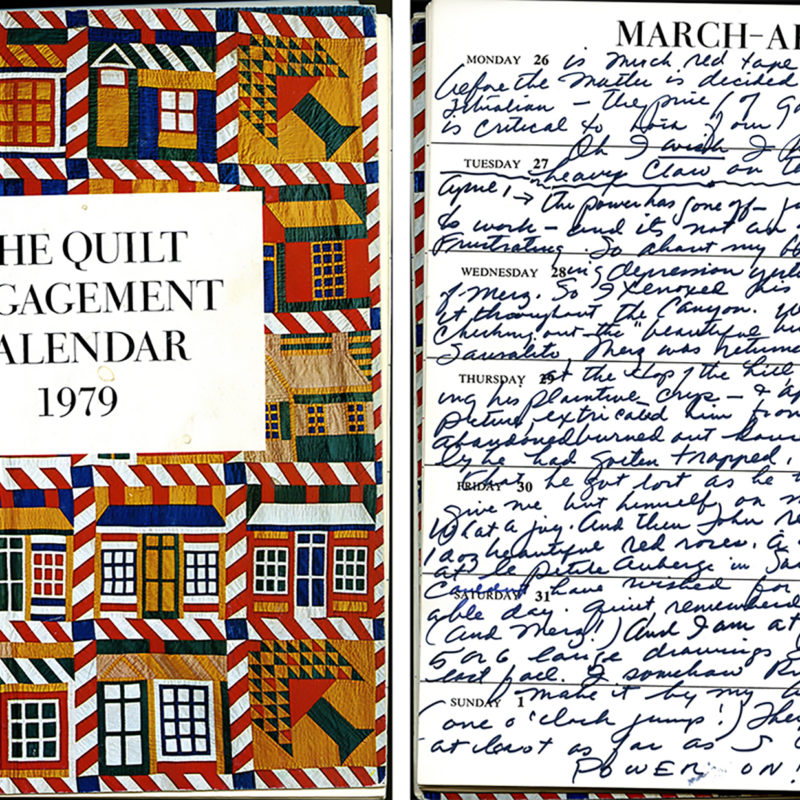 HE QUILT
GAGEMENT
ALENDAR
1979
MARCH-A
MONDAY 26 is much red tape
before the matter is decided
is critical to
Oh I wish I
TUESDAY 27 heavy Claw on
April 1 → the power has gone off
to work – and it's not an
Frustrating. So about my
WEDNESDAY 28 ing depression
of Merz. So I xeroxed his
it throughout the Canyon.
Checking out the "beautiful
Sausalito Merz was returned
THURSDAY 29 at the top of the hill
ing his plaintive crys – &
Peter extricated him from
abandoned burned out house
he had gotten trapped.
FRIDAY 30 that he got lost as he
give me but himself on
What a joy. And then John
1 doz beautiful red roses. a
at Le Petite Auberge in
SATURDAY 31 have wished for
able day. Quiet, remembered
(And Merz!) And I am at
5 or 6 large drawings
last fall. I somehow
SUNDAY 1 make it by my
(one o'clock jump!) They
at least as far as S
POWER ON!